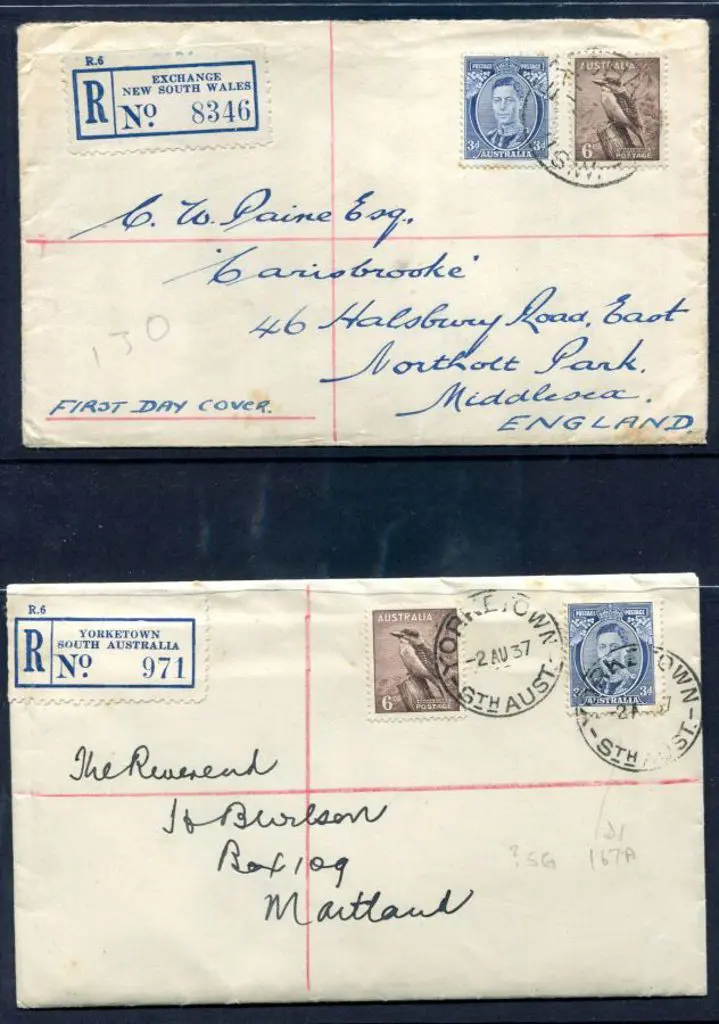 R.6
R
EXCHANGE
NEW SOUTH WALES
No 8346
POSTAGE POSTAGE
3d 3d
AUSTRALIA
AUSTRALIA
6D
POSTAGE
N.S.W.
C. W. Paine Esq,
'Carisbrooke'
46 Halsbury Road, East
Northolt Park.
Middlesex.
ENGLAND.
130
FIRST DAY COVER.
R.6
R
YORKETOWN
SOUTH AUSTRALIA
No 971
AUSTRALIA
6D
POSTAGE
YORKETOWN
-2 AU 37
STH AUST.
POSTAGE POSTAGE
3d
AUSTRALIA
YORKETOWN
-2 A 37
STH AUST.
The Reverend
Box 109
Maitland
?SG 167A
D1